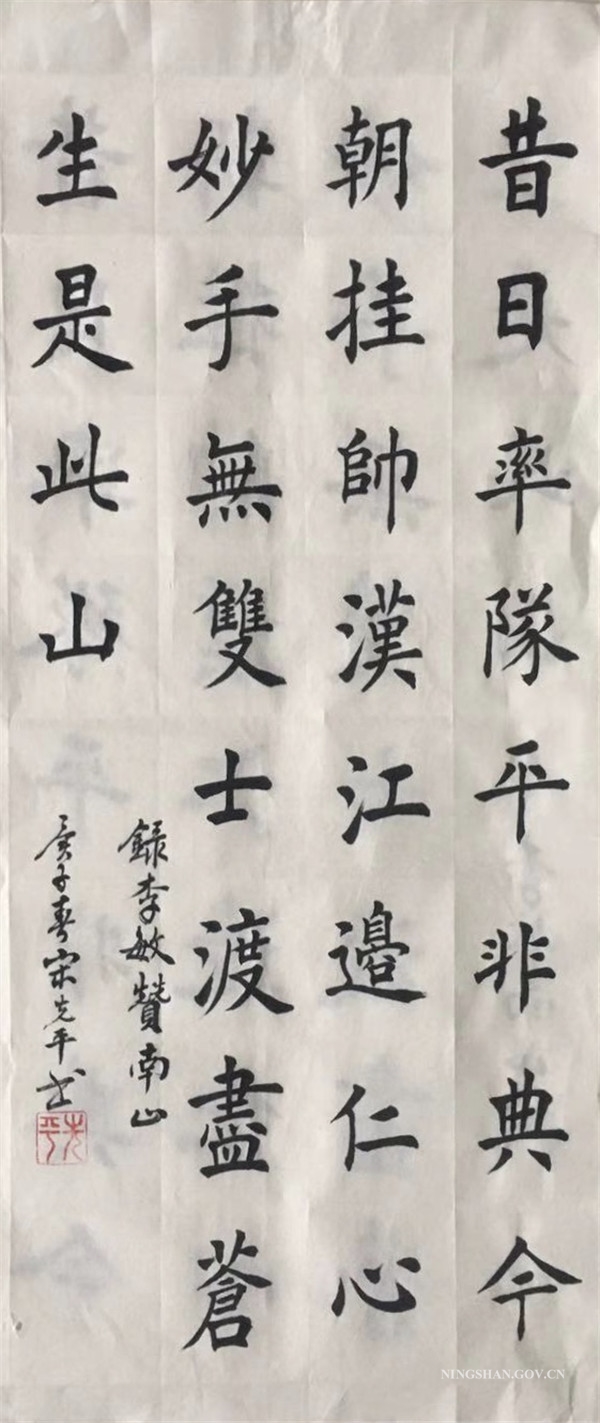 昔日率隊平非典今
朝挂帥漢江邊仁心
妙手無雙士渡盡蒼
生是此山
錄李敏贊南山
庚子春宋先平书
先平
NINGSHAN.GOV.CN